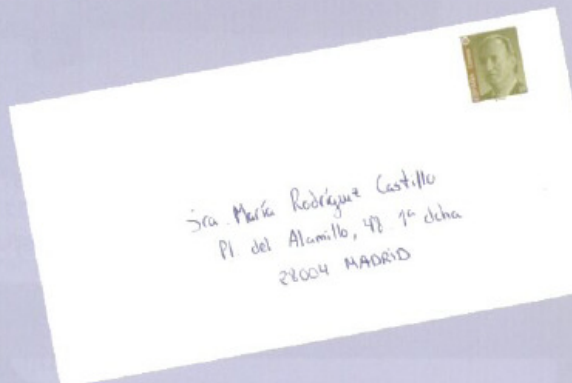 Sra. María Rodríguez Castillo
Pl. del Alamillo, 47 1ª dcha
28004 MADRID